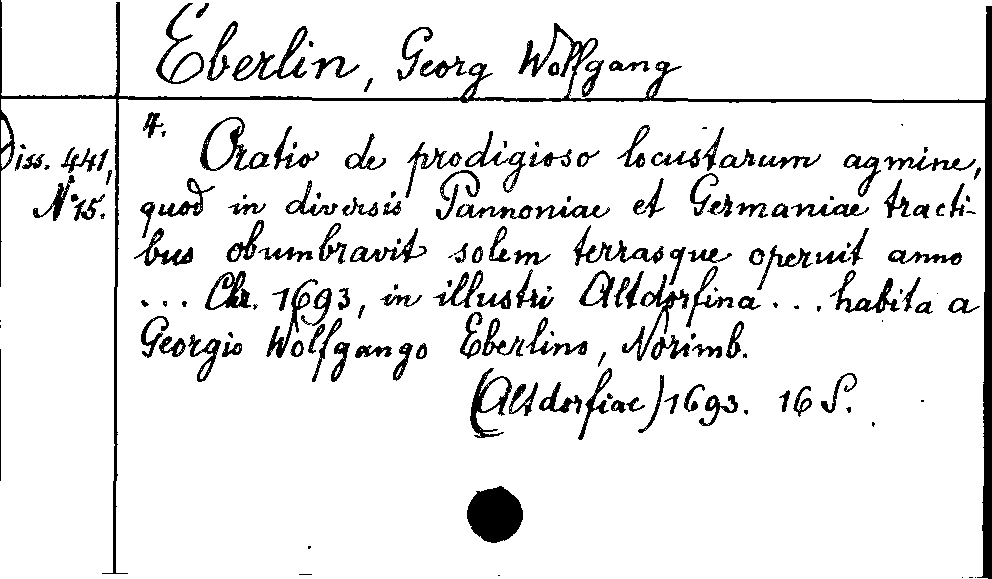 Eberlin, Georg Wolfgang
Diss. 441,
N° 15.
4.
Oratio de prodigioso locustarum agmine,
quod in diversis Pannoniae et Germaniae tracti-
bus obumbravit solem terrasque operuit anno
... Chr. 1693, in illustri Altdorfina ... habita a
Georgio Wolfgango Eberlino, Norimb.
(Altdorfiae) 1693. 16 S.